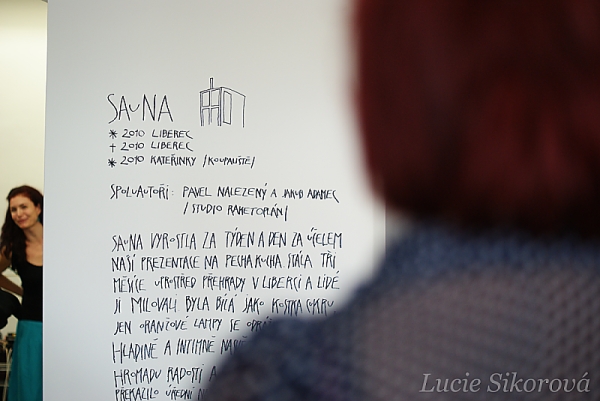 SAUNA
* 2010 LIBEREC
† 2010 LIBEREC
* 2010 KATEŘINKY /KOUPALIŠTĚ/
SPOLUAUTOŘI: PAVEL NALEZENÝ A JAKUB ADAMEC
/STUDIO RAKETOPLÁN/
SAUNA VYROSTLA ZA TÝDEN A DEN ZA ÚČELEM
NAŠÍ PREZENTACE NA PECHA KUCHA STÁLA TŘI
MĚSÍCE UPROSTŘED PŘEHRADY V LIBERCI A LIDÉ
JI MILOVALI BYLA BÍLÁ JAKO KOSTKA CUKRU
JEN ORANŽOVÉ LAMPY SE
HLADINĚ A INTIMNĚ
HROMADU RADOSTI A
PŘEKAZILO ÚŘEDNÍ
Lucie Sikorová